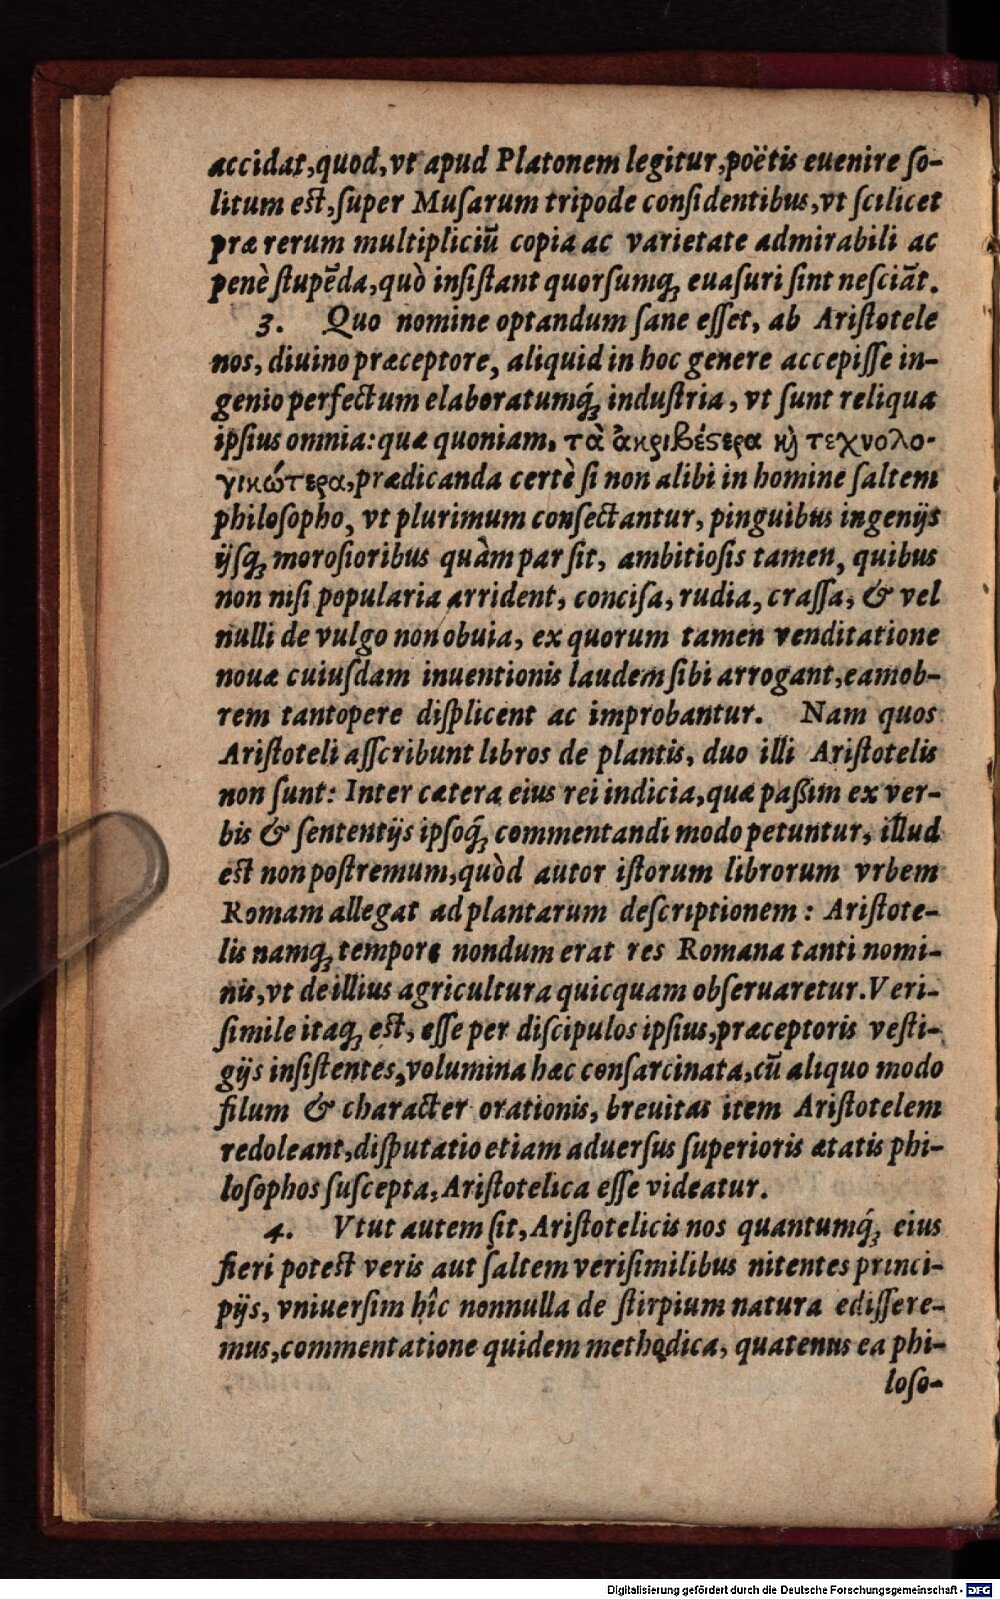 accidat, quod, vt apud Platonem legitur, poëtis euenire ſo-
litum eſt, ſuper Muſarum tripode conſidentibus, vt ſcilicet
præ rerum multipliciū copia ac varietate admirabili ac
penè ſtupēda, quò inſiſtant quorſumq; euaſuri ſint neſciāt.
3. Quo nomine optandum ſane eſſet, ab Ariſtotele
nos, diuino præceptore, aliquid in hoc genere accepiſſe in-
genio perfectum elaboratumq́; induſtria, vt ſunt reliqua
ipſius omnia: quæ quoniam. τὰ ἀκριβέϛερα ϗ̀ τεχνολο-
γικώτερα, prædicanda certè ſi non alibi in homine ſaltem
philoſopho, vt plurimum conſectantur, pinguibus ingenijs
ijſq; moroſioribus quàm par ſit, ambitioſis tamen, quibus
non niſi popularia arrident, conciſa, rudia, craſſa, & vel
nulli de vulgo non obuia, ex quorum tamen venditatione
nouæ cuiuſdam inuentionis laudem ſibi arrogant, eamob-
rem tantopere diſplicent ac improbantur. Nam quos
Ariſtoteli aſſcribunt libros de plantis, duo illi Ariſtotelis
non ſunt: Inter cætera eius rei indicia, quæ paßim ex ver-
bis & ſententijs ipſoq́; commentandi modo petuntur, illud
eſt non poſtremum, quòd autor iſtorum librorum vrbem
Romam allegat ad plantarum deſcriptionem: Ariſtote-
lis namq; tempore nondum erat res Romana tanti nomi-
nis, vt de illius agricultura quicquam obſeruaretur. Veri-
ſimile itaq; eſt, eſſe per diſcipulos ipſius, præceptoris veſti-
gijs inſiſtentes, volumina hæc conſarcinata, cū aliquo modo
filum & character orationis, breuitas item Ariſtotelem
redoleant, diſputatio etiam aduerſus ſuperioris ætatis phi-
loſophos ſuſcepta, Ariſtotelica eſſe videatur.
4. Vtut autem ſit, Ariſtotelicis nos quantumq́; eius
fieri poteſt veris aut ſaltem veriſimilibus nitentes princi-
pijs, vniuerſim hîc nonnulla de ſtirpium natura ediſſere-
mus, commentatione quidem methodica, quatenus ea phi-
loſo-
Digitalisierung gefördert durch die Deutsche Forschungsgemeinschaft - DFG